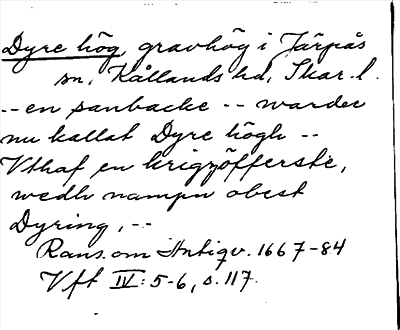 Dyre hög, gravhög i Järpås
sn, Kållands hd, Skar. l.
-- en sanbacke -- warder
nu kallat Dyre högh --
Vthaf en krigzöfferste,
wedh nampn obest
Dyring, --
Rans. om Antiqv. 1667-84
Vft IV: 5-6, s. 117.